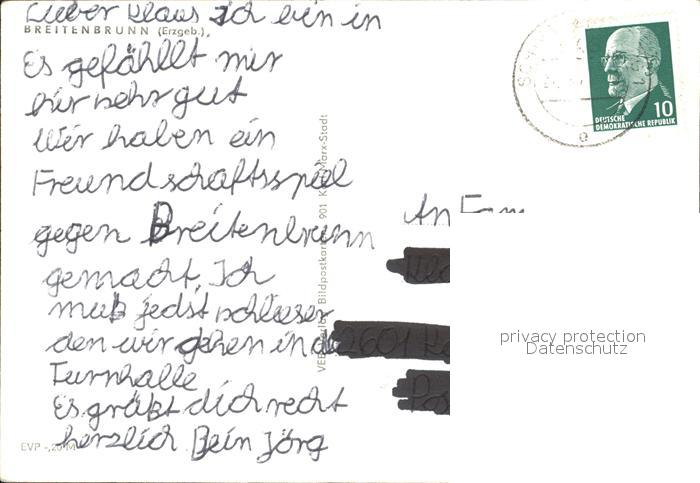 Lieber Klaus Ich bin in
BREITENBRUNN (Erzgeb.)
Es gefährllt mir
hir sehr gut
Wir haben ein
Freundschaftsspiel
gegen Breitenbrunn
gemacht. Ich
muß jedst schlieser
den wir gehen in de
Turnhalle
Es grüßt dich recht
herzlich Dein Jörg
EVP -,20 M
VEB Bild Bildpostkarten 901 Karl-Marx-Stadt
10
DEUTSCHE
DEMOKRATISCHE REPUBLIK
An Fam
2601
privacy protection
Datenschutz